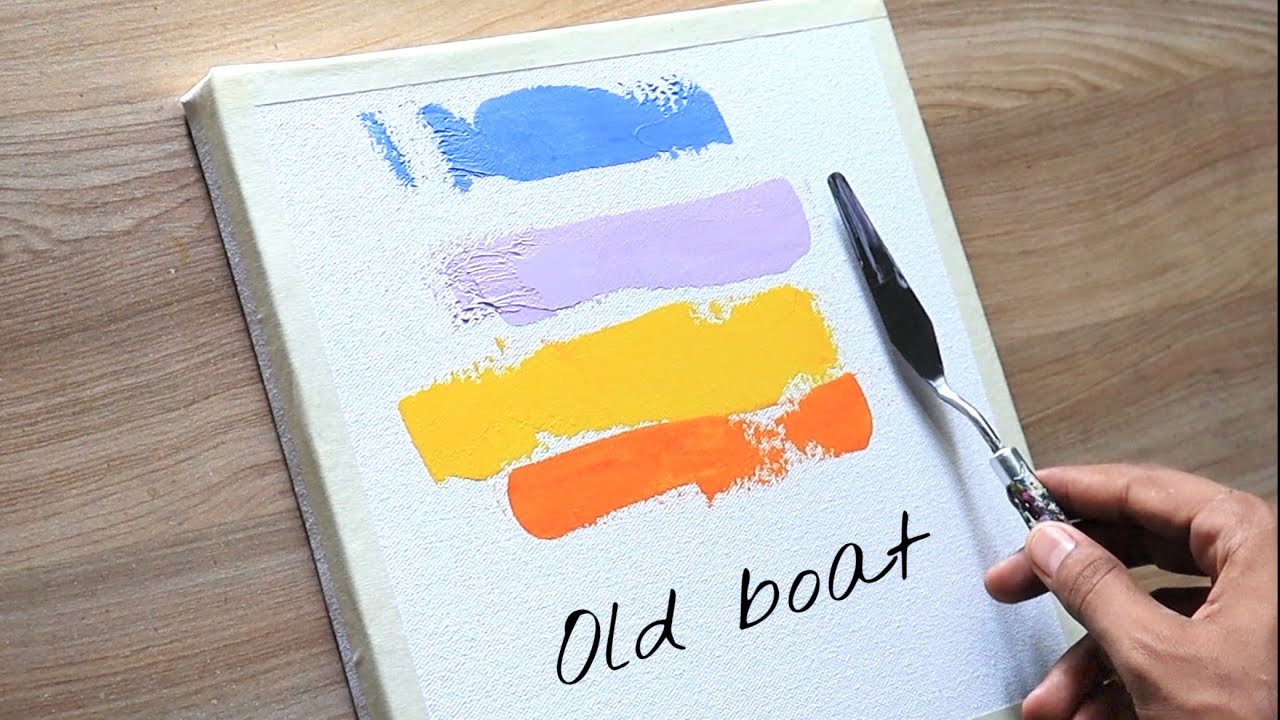 Old boat